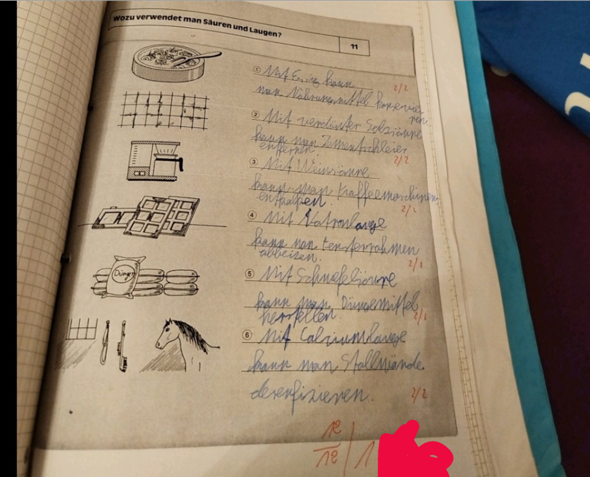 Wozu verwendet man Säuren und Laugen?
11
① Mit Essig kann
2/2
man Nahrungsmittel konservie
ren.
② Mit verdünnter Salzsäure
kann man Zementschleier
entfernen.
2/2
③ Mit Weinsäure
kann man Kaffeemaschinen
entkalken.
2/2
④ Mit Natronlauge
kann man Fensterrahmen
abbeizen.
2/2
Dünger
⑤ Mit Schwefelsäure
kann man Düngemittel
herstellen.
2/2
⑥ Mit Calciumlauge
kann man Stallwände
desinfizieren.
2/2
12
12
1